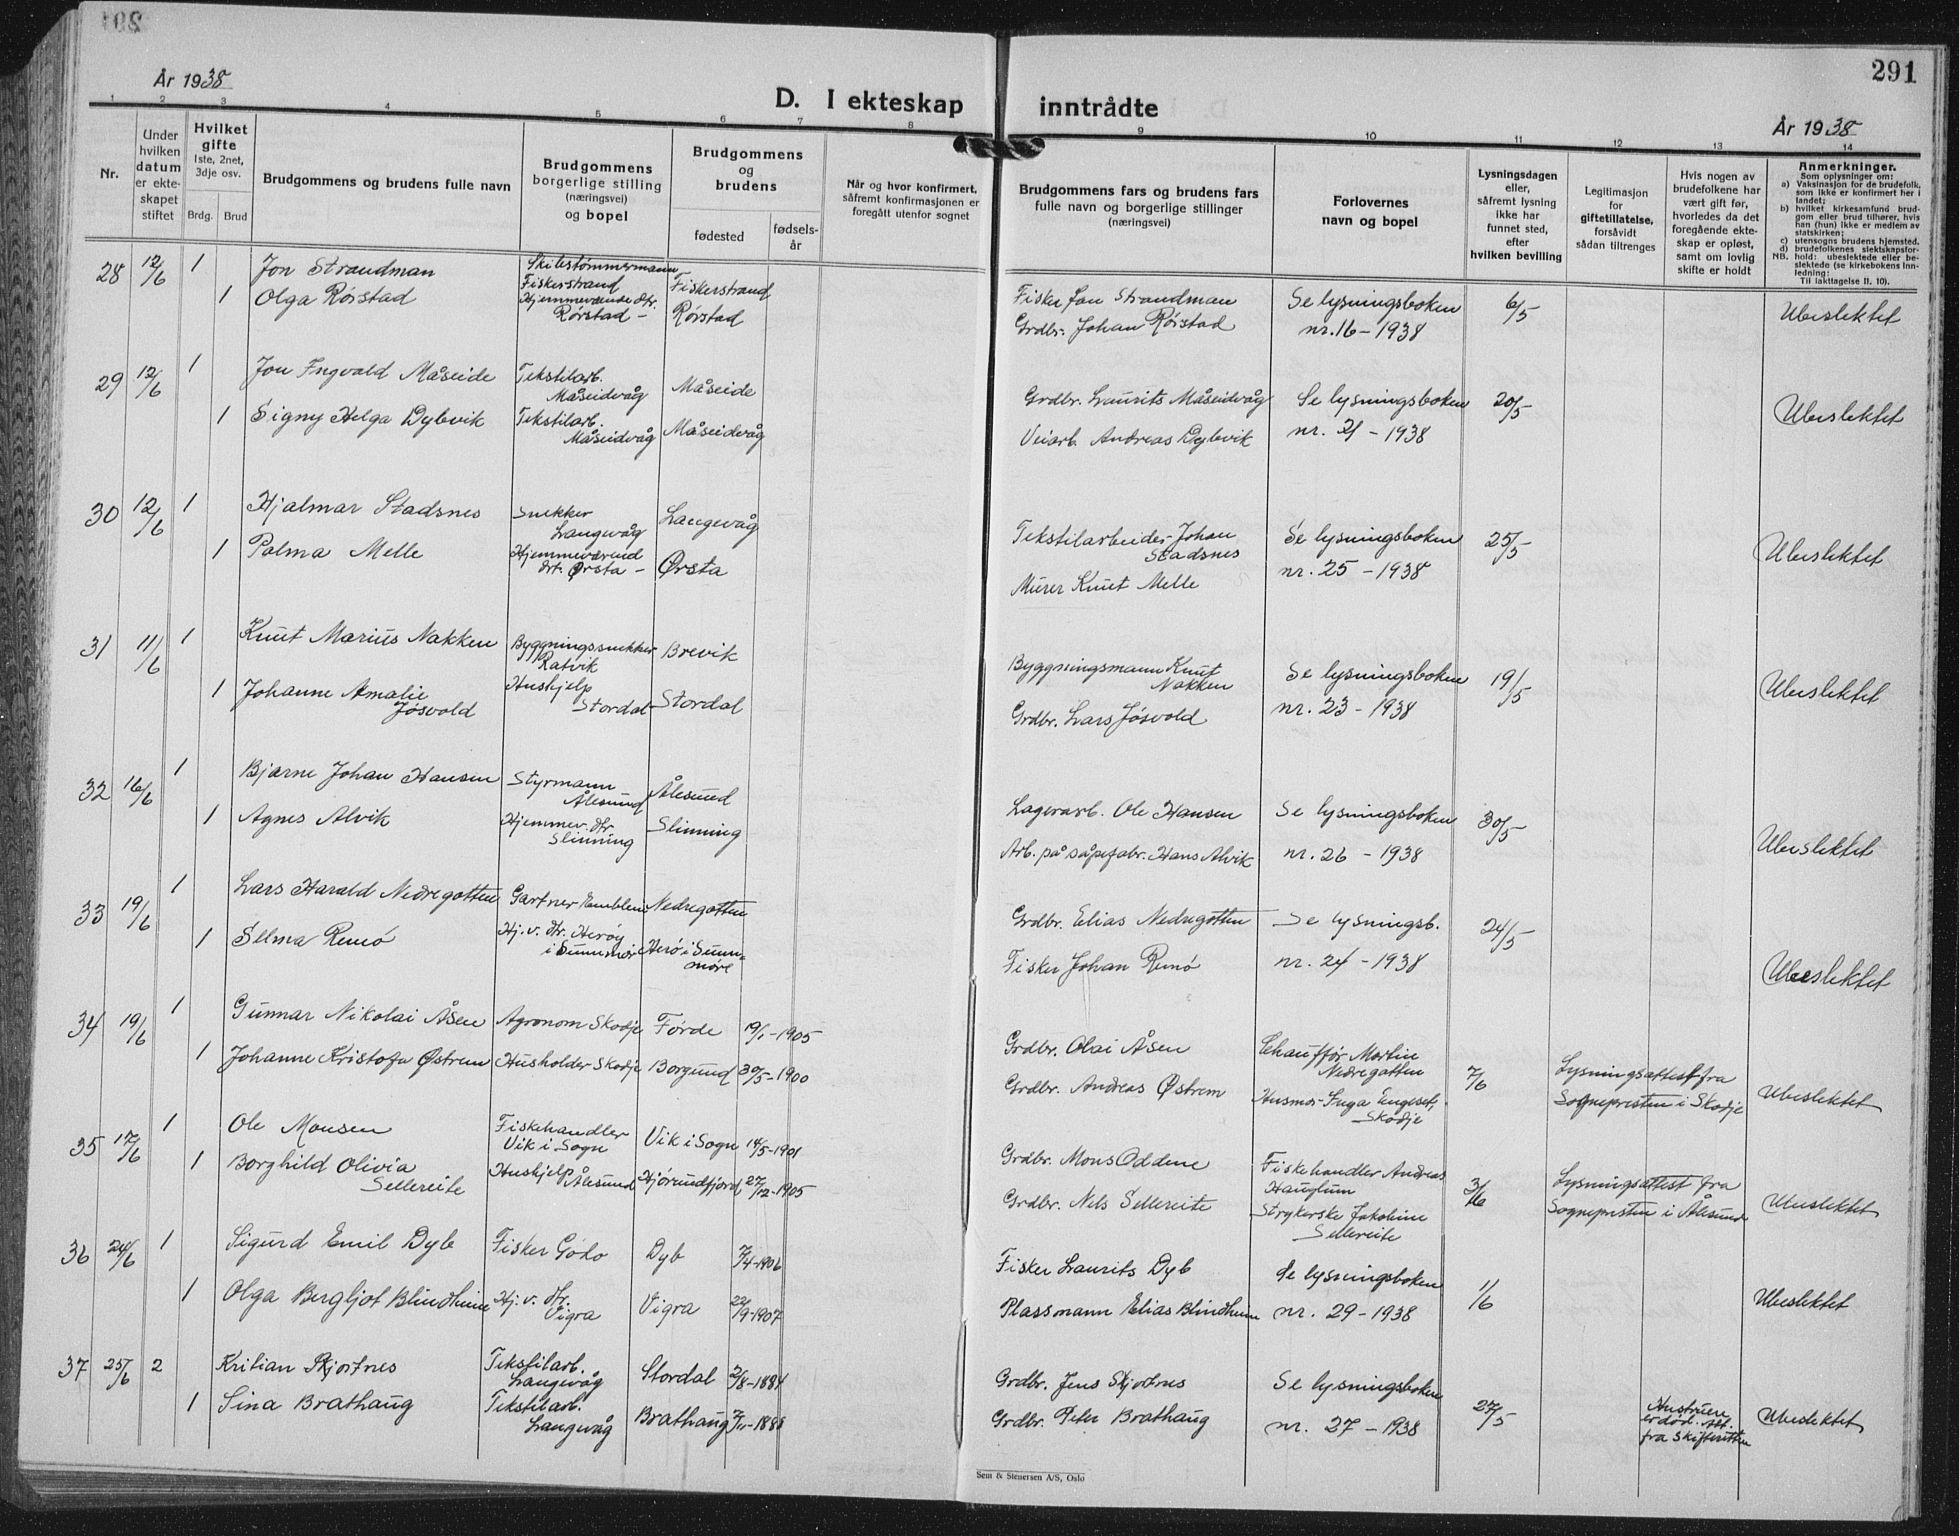 291
År 1938
D. I ekteskap inntrådte
År 1938
1 2 3 4 5 6 7 8 9 10 11 12 13 14
Nr.
Under hvilken datum er ekteskapet stiftet
Hvilket gifte
1ste, 2net, 3dje osv.
Brdg. Brud
Brudgommens og brudens fulle navn
Brudgommens borgerlige stilling (næringsvei) og bopel
Brudgommens og brudens
fødested
fødselsår
Når og hvor konfirmert, såfremt konfirmasjonen er foregått utenfor sognet
Brudgommens fars og brudens fars fulle navn og borgerlige stillinger (næringsvei)
Forlovernes navn og bopel
Lysningsdagen eller, såfremt lysning ikke har funnet sted, efter hvilken bevilling
Legitimasjon for giftetillatelse, forsåvidt sådan tiltrenges
Hvis nogen av brudefolkene har vært gift før, hvorledes da det foregående ekteskap er opløst, samt om lovlig skifte er holdt
Anmerkninger.
Som oplysninger om:
a) Vaksinasjon for de brudefolk, som ikke er konfirmert her i landet;
b) hvilket kirkesamfund brudgom eller brud tilhører, hvis han (hun) ikke er medlem av statskirken;
c) utensogns brudens hjemsted.
d) brudefolkenes slektskapsforhold: ubeslektede eller beslektede (se kirkebokens innledning:
NB.
Til iakttagelse II. 10).
28 12/6 1 Jon Strandman Skibstømmermann Fiskerstrand Fiskerstrand Fisker Jon Strandman Se lysningsboken 6/5 Ubeslektet
1 Olga Rørstad Hjemmeværende dtr. Rørstad – Rørstad Grdbr. Johan Rørstad nr. 16 – 1938
29 12/6 1 Jon Ingvald Måseide Tekstilarb. Måseidvåg Måseide Grdbr. Laurits Måseidvåg Se lysningsboken 20/5 Ubeslektet
1 Signy Helga Dybvik Tekstilarb. Måseidvåg Måseidvåg Veiarb. Andreas Dybvik nr. 21 – 1938
30 12/6 1 Hjalmar Stadsnes Snekker Langevåg Langevåg Tekstilarbeider Johan Stadsnes Se lysningsboken 25/5 Ubeslektet
1 Palma Melle Hjemmeværend dtr. Ørsta – Ørsta Murer Knut Melle nr. 25 – 1938
31 11/6 1 Knut Marius Nakken Byggningssnekker Ratvik Brevik Byggningsmann Knut Nakken Se lysningsboken 19/5 Ubeslektet
1 Johanne Amalie Jøsvold Hushjelp Stordal Stordal Grdbr. Lars Jøsvold nr. 23 – 1938
32 16/6 1 Bjarne Johan Hansen Styrmann Ålesund Ålesund Lagerarb. Ole Hansen Se lysningsboken 30/5 Ubeslektet
1 Agnes Alvik Hjemmev. dtr. Slinning Slinning Arb. på såpefabr. Hans Alvik nr. 26 – 1938
33 19/6 1 Lars Harald Nedregotten Gartner Emblem Nedregotten Grdbr. Elias Nedregotten Se lysningsb. 24/5 Ubeslektet
1 Selma Remø Hj. v. dtr. Herøy i Sunnmøre Herø i Sunnmøre Fisker Johan Remø nr. 24 – 1938
34 19/6 1 Gunnar Nikolai Åsen Agronom Skodje Førde 19/1-1905 Grdbr. Olai Åsen Chauffør Martin Nedregotten 7/6 Lysningsattest fra Sognepresten i Skodje Ubeslektet
1 Johanne Kristofa Østrem Husholder Skodje Borgund 30/5-1900 Grdbr. Andreas Østrem Husmor Inga Engeset, Skodje
35 17/6 1 Ole Monsen Fiskehandler Vik i Sogn Vik i Sogn 14/5-1901 Grdbr. Mons Oddene Fiskehandler Andreas Hauglum 3/6 Lysningsattest fra Sognepresten i Ålesund Ubeslektet
1 Borghild Olivia Sellereite Hushjelp Ålesund Hjørundfjord 27/12-1905 Grdbr. Nels Sellereite Strykerske Jakobine Sellereite
36 24/6 1 Sigurd Emil Dyb Fisker Godø Dyb 7/4-1906 Fisker Laurits Dyb Se lysningsboken 1/6 Ubeslektet
1 Olga Bergljot Blindheim Hj. v. dtr. Vigra Vigra 22/9-1907 Plassmann Elias Blindheim nr. 29 – 1938
37 25/6 2 Kritian Skjortnes Tekstilarb. Langevåg Stordal 2/8-1884 Grdbr. Jens Skjortnes Se lysningsboken 27/5 Hustruen er død. Att. fra Skifteretten Ubeslektet
1 Sina Brathaug Tekstilarb. Langevåg Brathaug 7/11-1888 Grdbr. Peter Brathaug nr. 27 – 1938
Sem & Stenersen A/S, Oslo